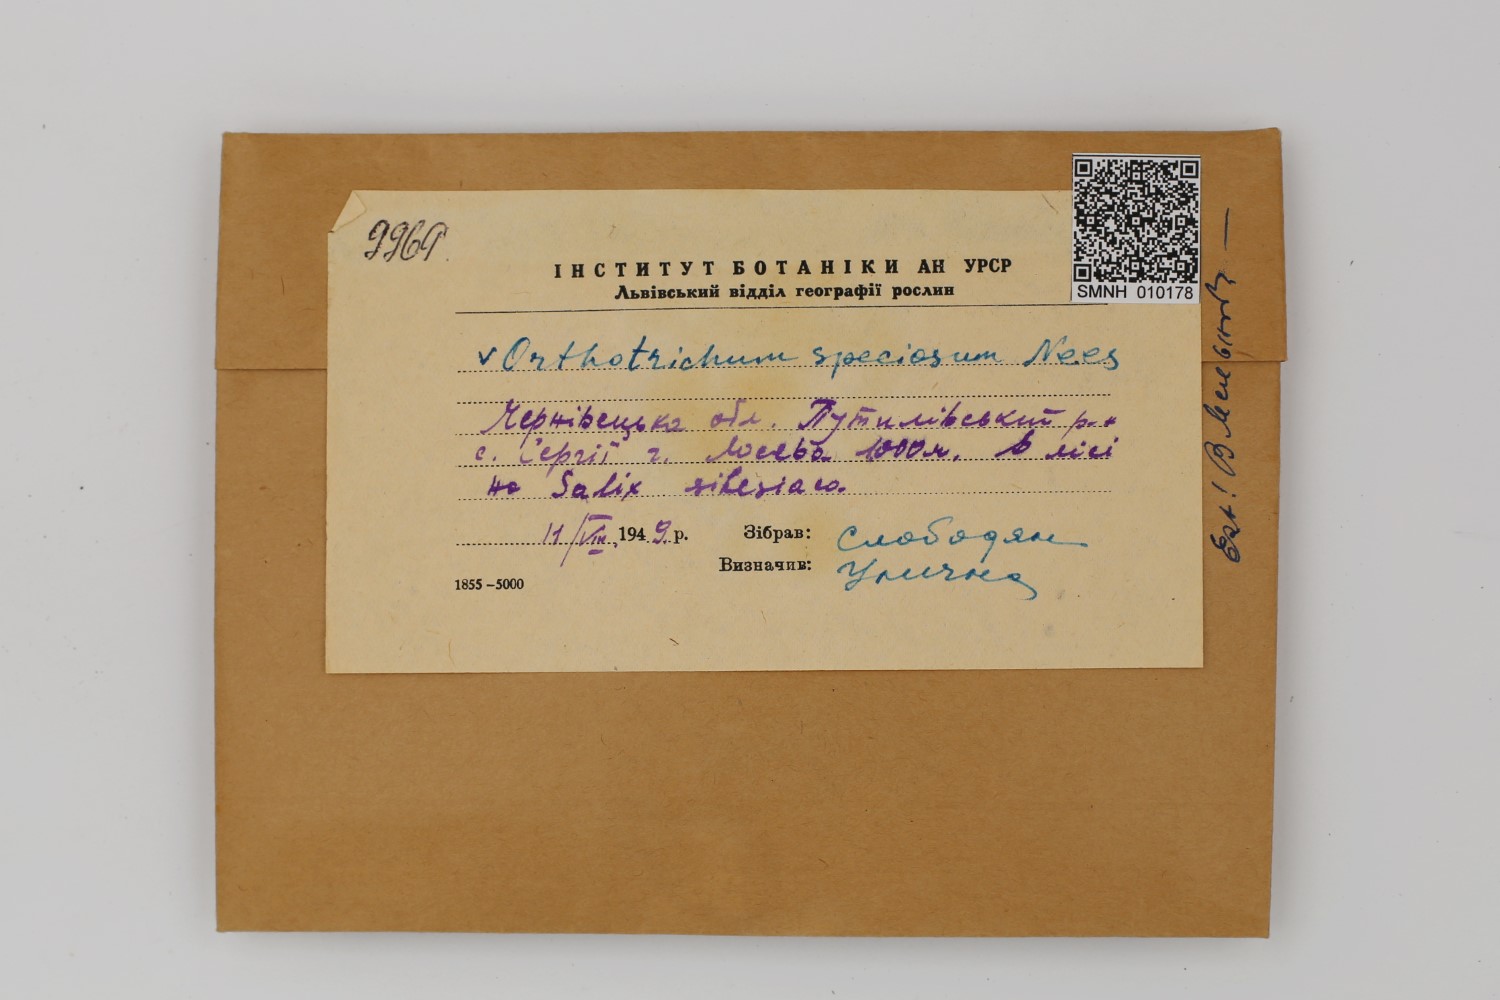 ІНСТИТУТ БОТАНІКИ АН УРСР
Львівський відділ географії рослин
SMNH 010178
v Orthotrichum speciosum Nees
Чернівецька обл. Путилівський р-н
с. Сергії г. 1000 м. в лісі
на Salix silesiaca
11/VIII 1949 р. Зібрав: Слободян
Визначив: Улична
1855-5000